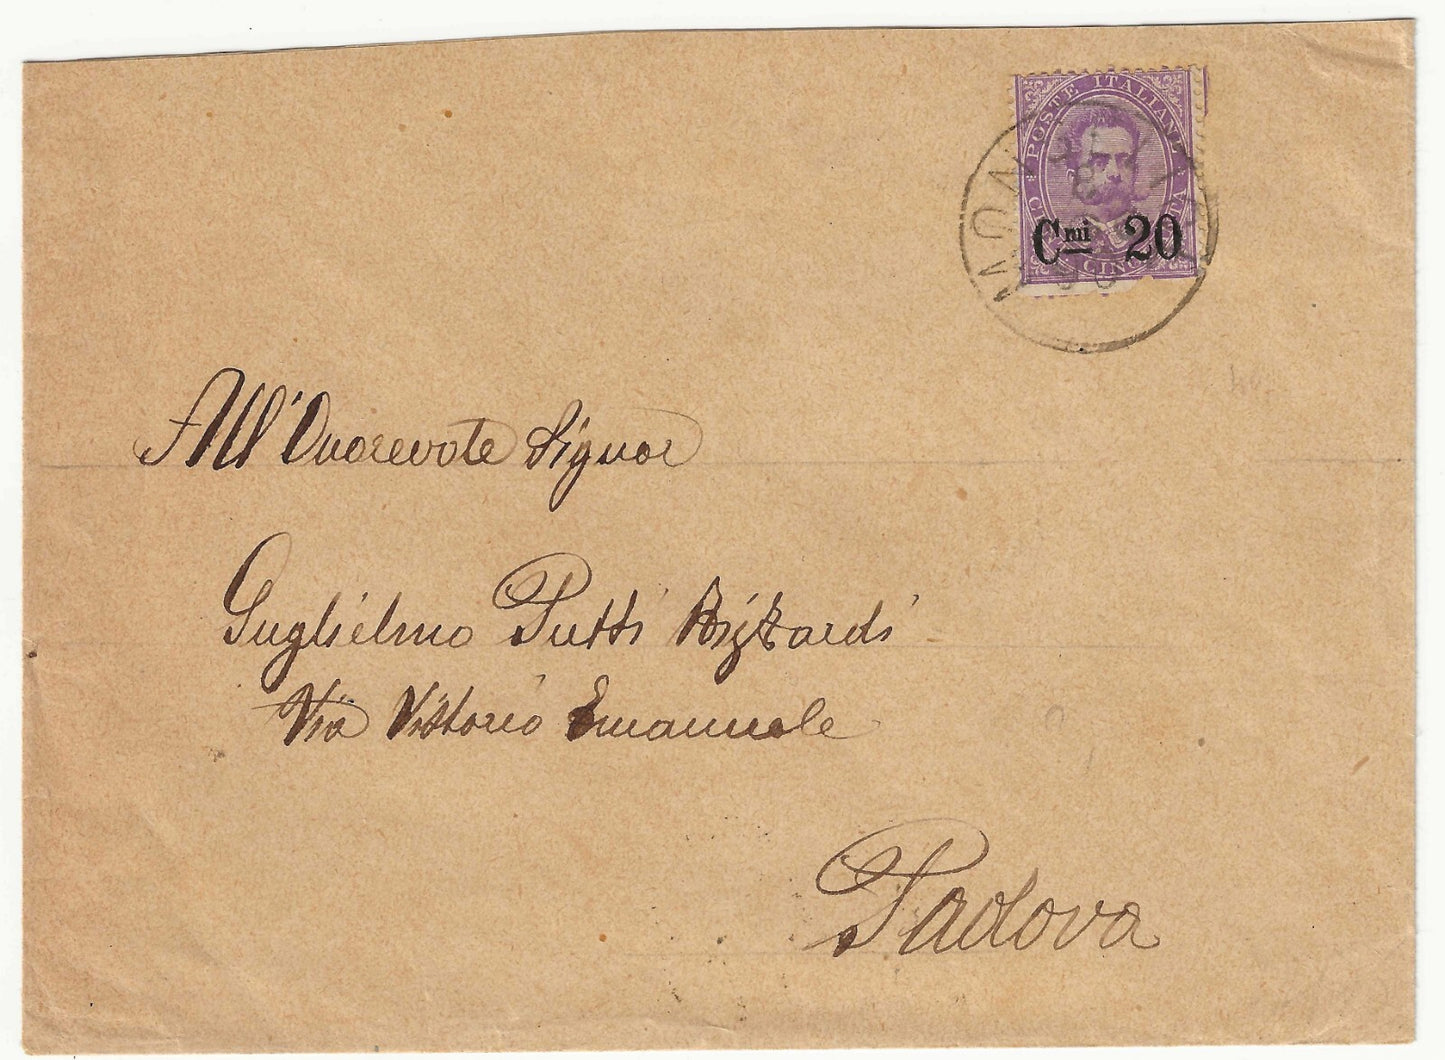 POSTE ITALIANE
Cmi 20
All'Onorevole Signor
Guglielmo Putti Rizzardi
Via Vittorio Emanuele
Padova